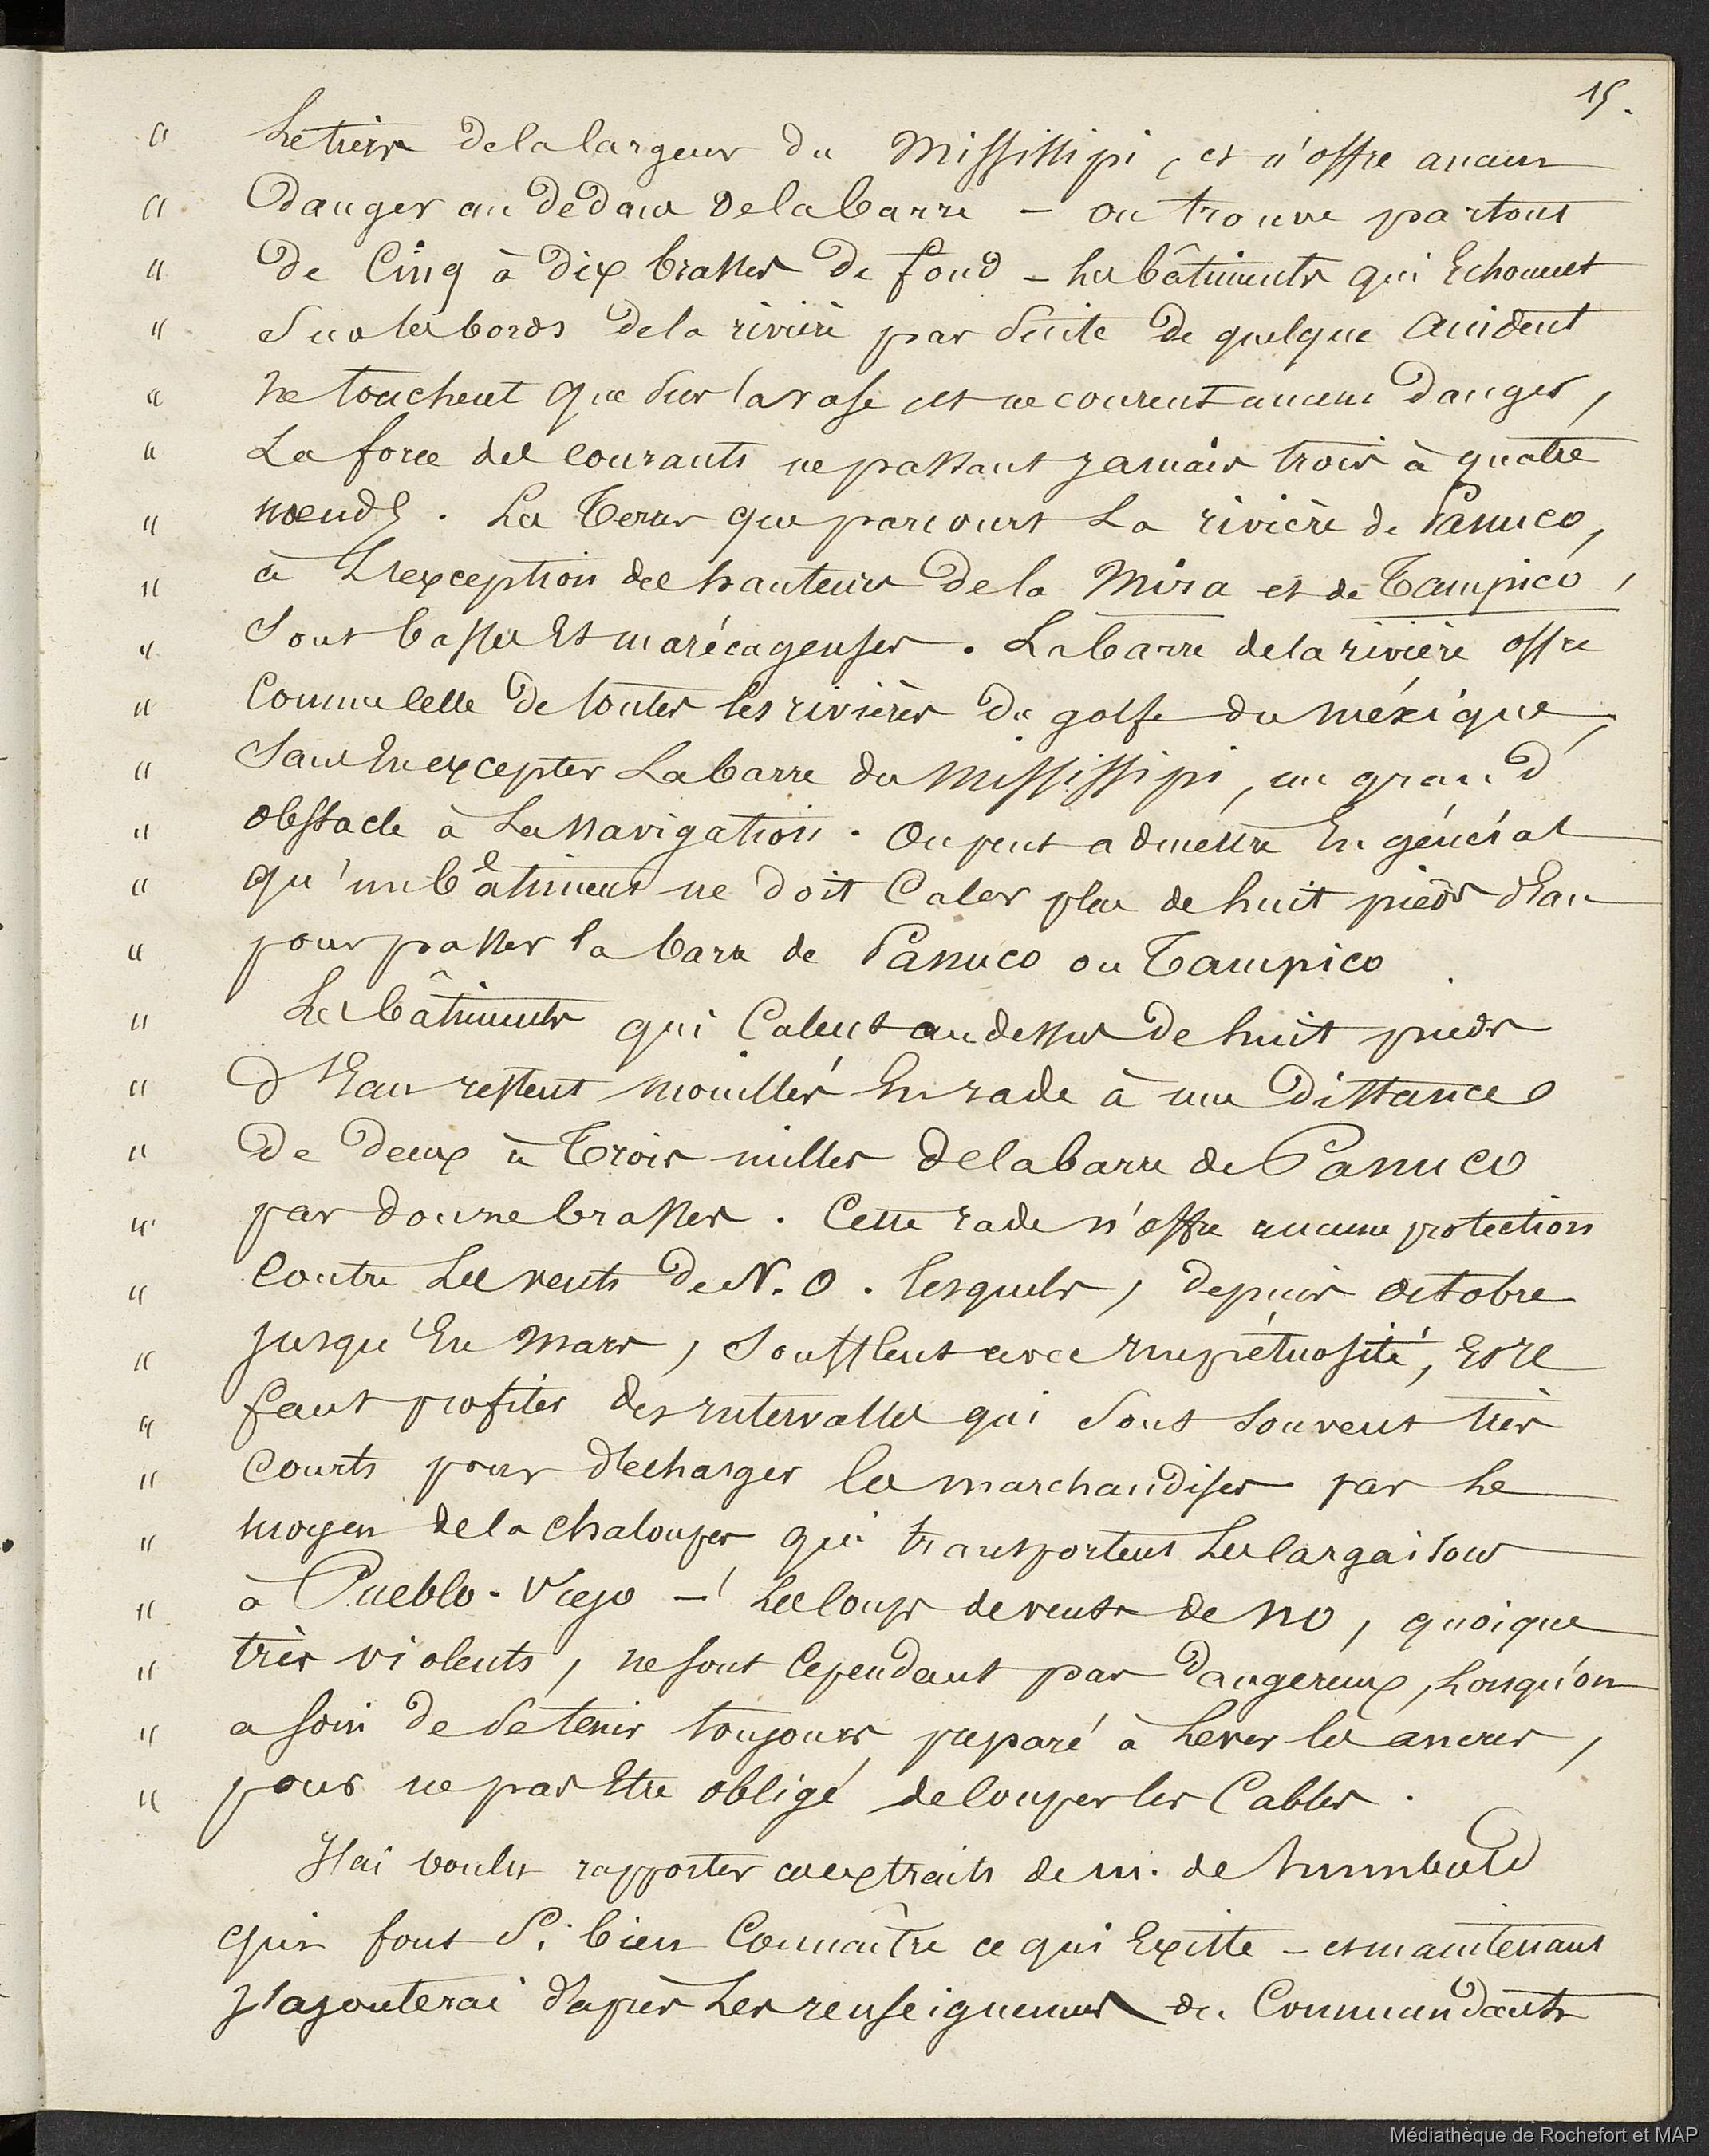 15.
" Le tiers de la largeur du Mississipi, et n'offre aucun
" danger au dedans de la barre – on trouve partout
" de Cinq à dix brasses de fond – les bâtiments qui Echouent
" Sur les bords de la rivière par Suite de quelque Accident
" ne touchent que Sur la vase et ne courent aucun danger,
" La force des courants ne passant jamais trois à quatre
" nœuds. Les Terres que parcourt La rivière de Panuco,
" à L'exception des hauteurs de la Mira et de Tampico,
" Sont basses Et marécageuses. La barre de la rivière offre
" Comme Celle de toutes les rivières du golfe du méxique,
" Sans En excepter La barre du Mississipi, un grand
" obstacle à La Navigation. On peut admettre En général
" qu'un bâtiment ne doit Caler plus de huit pieds d'Eau
" pour passer la barre de Panuco ou Tampico
" Les bâtiments qui Calent au dessus de huit pieds
" d'Eau restent mouillés En rade à une Distance
" De Deux à Trois milles de la barre de Panuco
" par douze brasses. Cette rade n'offre aucune protection
" Contre Les vents De N. O. lesquels, depuis octobre
" jusqu'En Mars, Soufflent avec impétuosité, Et il
" faut profiter des intervalles qui Sont Souvent très
" Courts pour décharger les marchandises par Le
" moyen de la chaloupes qui transportent Les Cargaisons
" à Pueblo-Viejo – Les Coups de vents de NO, quoique
" très violents, ne sont Cependant pas dangereux, Lorsqu'on
" a soin de Se tenir toujours préparé à Lever les ancres,
" pour ne pas Etre obligé de Couper les Cables.
J'ai voulu rapporter ces extraits de m. de humbold
qui font Si bien Connaître ce qui Existe – et maintenant
J'ajouterai d'après Les renseignemens du Commandants
Médiathèque de Rochefort et MAP